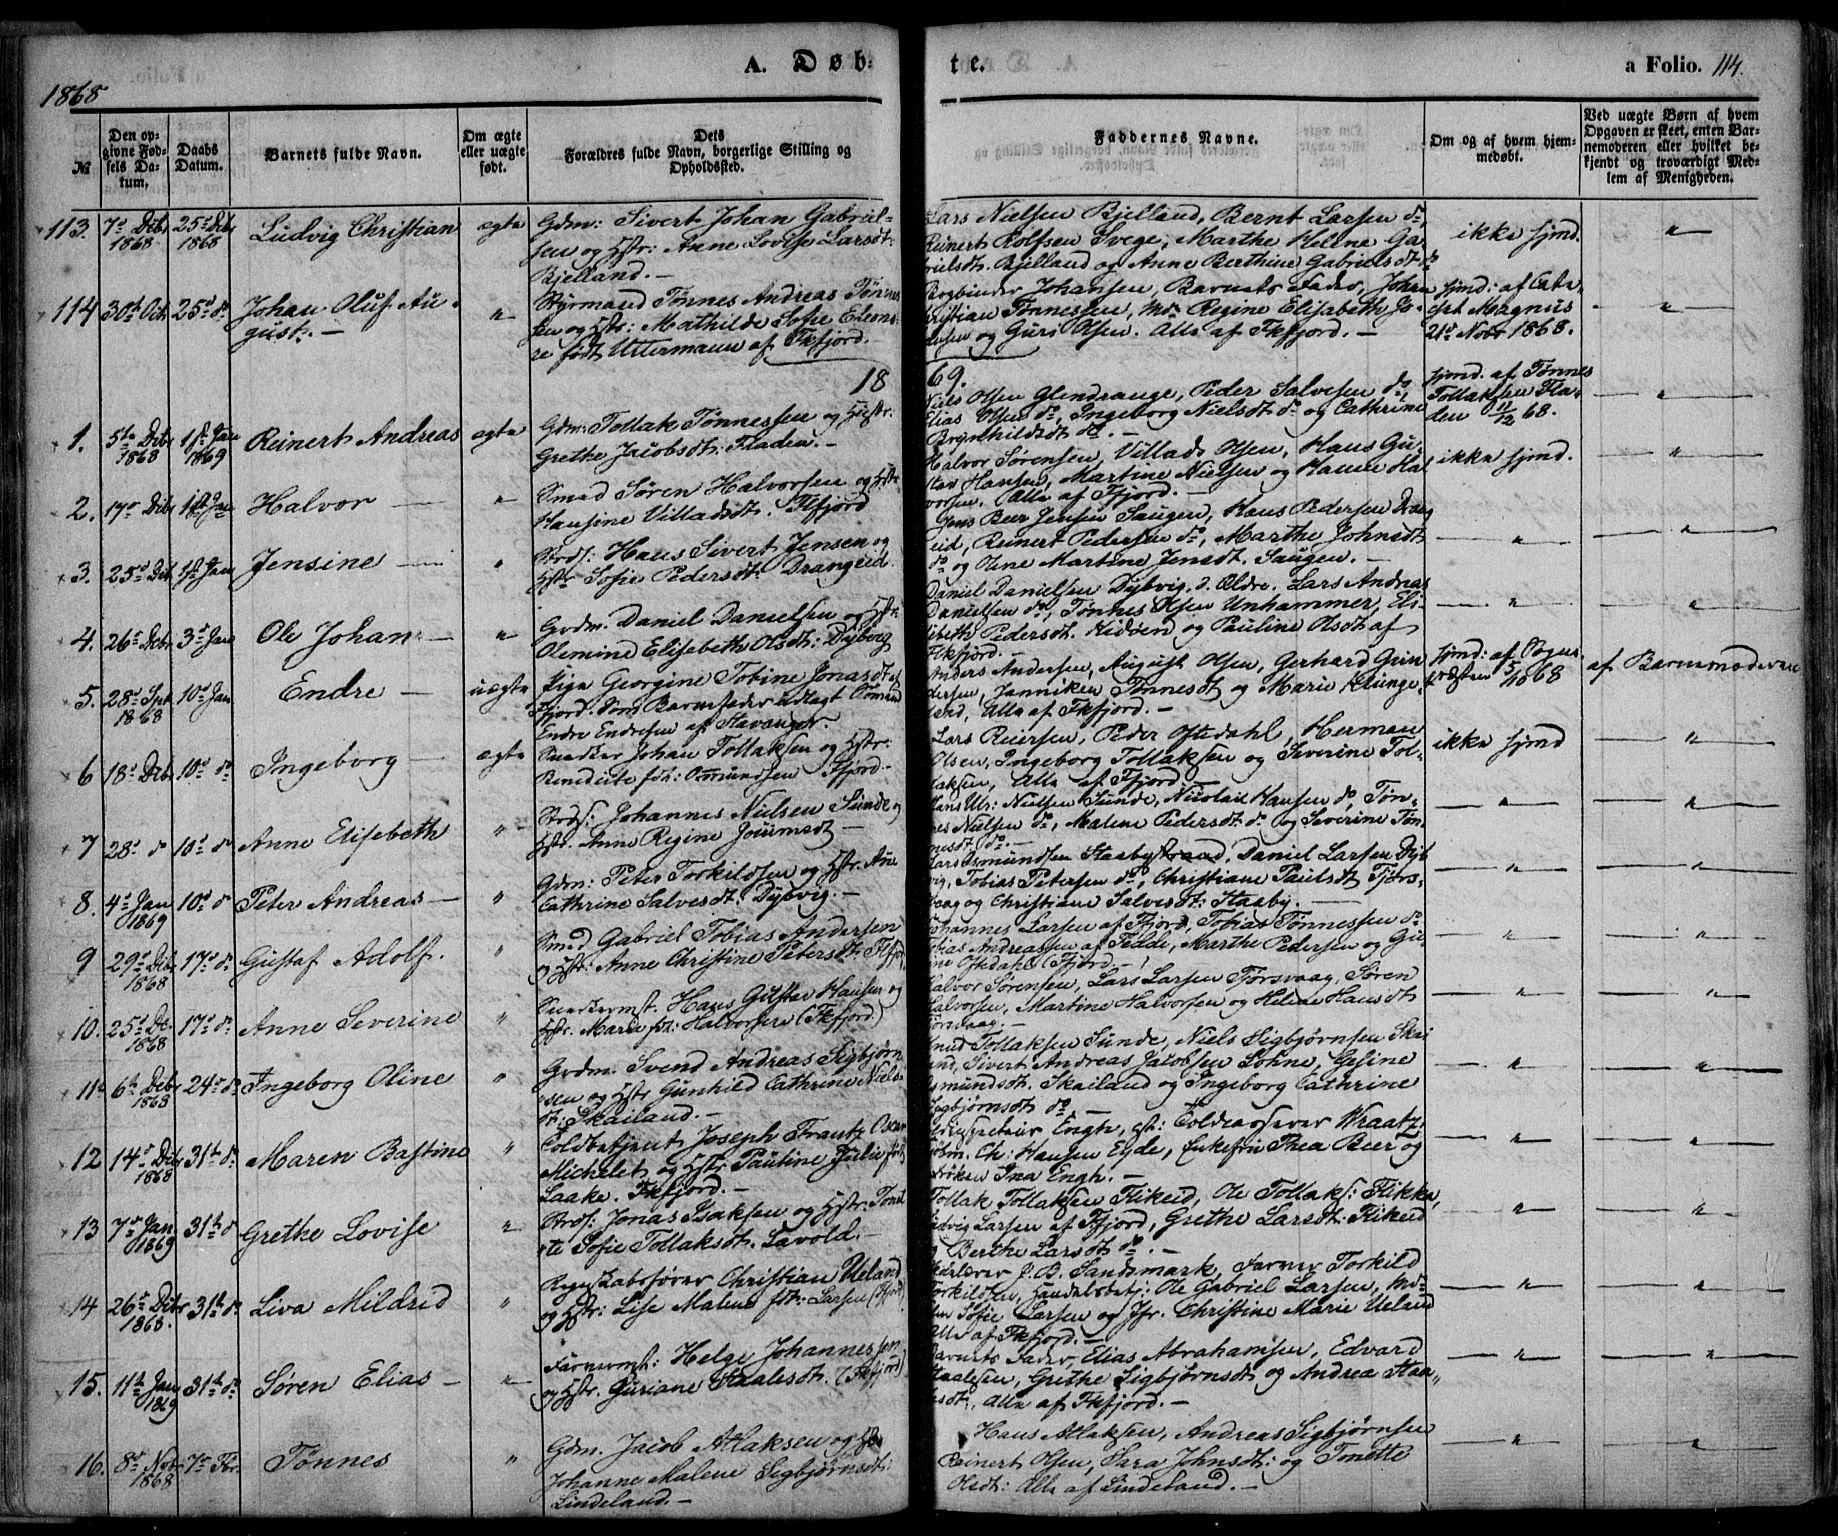 1868
A. Døb-
te.
a Folio. 114.
№
Den op-
givne Fød-
sels Da-
tum.
Daabs
Datum.
Barnets fulde Navn.
Om ægte
eller uægte
født.
Dets
Forældres fulde Navn, borgerlige Stilling og
Opholdssted.
Faddernes Navne.
Om og af hvem hjem-
medøbt.
Ved uægte Børn af hvem
Opgaven er skeet, enten Bar-
nemoderen eller hvilket be-
kjendt og troværdigt Med-
lem af Menigheden.
113. 7de Debr 1868 25de Debr 1868 Ludvig Christian ægte
Gdm: Sivert Johan Gabriel-
sen og Hstr: Anne Lovise Larsdt:
Bjelland. -
Lars Nielsen Bjelland, Bernt Larsen do,
Reinert Rolfsen Svege, Marthe Helene Ga-
brielsdt. Bjelland og Anne Berthine Gabrielsdt do
ikke hjmd. "
114 30te Oct 25de do Johan Oluf Au-
gust. - "
Styrmand Tønnes Andreas Tønnes-
sen og Hstr: Mathilde Sofie Eleono-
re født Uttermann af Fkfjord.
Bogbinder Johansen, Barnets Fader, Johan
Kristian Tønnessen, Md: Regine Elisabeth Jo-
hansen og Guri Olsen. Alle af Fkfjord. -
hjmd: af Cate-
chet Magnus
21de Novbr 1868. "
1869.
1. 5te Debr 1868 1ste Jan 1869 Reinert Andreas ægte
Gdm: Tollak Tønnessen og Hstr:
Grethe Jacobsdt: Fladen. -
Niels Olsen Glendrange, Peder Salvesen do,
Elias Olsen do, Ingeborg Nielsdt do og Cathrine
Brynhildsdt do. -
hjmd. af Tønnes
Tollaksen Fla-
den 11/12 68. "
2. 17de Debr 1ste Jan Halvor "
Smed Søren Halvorsen og Hstr
Hansine Villadsdt. Fkfjord
Halvor Sørensen, Villads Olsen, Hans Gu-
stav Hansen, Martine Nielsen og Hanne Hal-
vorsen. Alle af Fkfjord. -
ikke hjmd. "
3. 25de Debr 1ste Jan Jensine "
Strds: Hans Sivert Jensen og
Hstr Sofie Pedersdt: Drangeid
Jens Beer Jensen Saugen, Hans Pedersen Drang-
eid, Reinert Pedersen do, Marthe Johnsdt
do og Oline Martine Jensdt. Saugen. -
" "
4. 26de Debr 3de Jan Ole Johan "
Grdm. Daniel Danielsen og Hstr
Olemine Elisabeth Olsdt: Dybvig
Daniel Danielsen Dybvig d. Ældre. Lars Andreas
Danielsen do, Tønnes Olsen Unhammer, Eli-
sebeth Pedersdt. Hidøen og Pauline Olsdt af
Fkfjord. -
" "
5. 28de Sept 1868 10de Jan Endre uægte
Pige Georgine Tobine Jonasdt af
Fjord. Som Barnefader udlagt Tømmermd
Endre Endresen af Stavanger.
Anders Andersen, August Olsen, Gerhard Grun-
dersen, Janniken Tønnesdt og Marie Klunge-
land, Alle af Fkfjord. -
hjmd: af Sogne-
præsten 5/10 68
af Barnemoderen
6 18de Debr 10de do Ingeborg ægte
Snedker Johan Tollaksen og Hstr:
Benedicte fdt: Ommundsen Fkfjord. -
Lars Reiersen, Peder Oftedahl, Herman
Olsen, Ingeborg Tollaksen og Severine Tol-
laksen, Alle af Fkfjord. -
ikke hjmd "
7 28de do 10de do Anne Elisebeth "
Strds: Johannes Nielsen Sunde og
Hstr. Anne Regine Jørunsdt -
Hans Ur: Nielsen Sunde, Nicolai Hansen do, Tøn-
nes Nielsen do, Malene Pedersdt do og Severine Tøn-
nesdt do. -
" "
8. 4de Jan 1869 10de do Peter Andreas "
Gdm: Peter Torkildsen og Hstr. Ane
Cathrine Salvesdt. Dybvig. -
Lars Osmundsen Staabystrand, Daniel Larsen Dyb-
vig, Tobias Petersen do, Christiane Paulsdt Tjørs-
vaag og Christiane Salvesdt: Staaby. -
" "
9 29de Debr 1868 17de do Gustaf Adolf. "
Smed Gabriel Tobias Andersen
og Hstr: Anne Christine Petersdt: Fkfjord
Johannes Larsen af Fkfjord, Tobias Tønnessen do
Tobias Andreassen af Fedde, Marthe Pedersen og Gu-
rine Oftedahl (Fkfjord. - )
" "
10. 25de Debr 1868 17de do Anne Severine "
Snedkermst. Hans Gustav Hansen og
Hstr. Marie fdt: Halvorsen (Fkfjord)
Halvor Sørensen, Lars Larsen Tjørsvaag, Søren
Halvorsen, Martine Halvorsen og Helene Hansdt
Tjørsvaag. -
" "
11. 6te Debr 1868 24de do Ingeborg Oline "
Grdm. Svend Andreas Sigbjørn-
sen og Hstr Gunhild Cathrine Niels-
dt: Skailand. -
Knud Tollaksen Sunde, Niels Sigbjørnsen Skai-
land, Sivert Andreas Jacobsen Løhne, Geline
Osmundsdt. Skailand og Ingeborg Cathrine
Sigbjørnsdt do. -
" "
12 14de Debr 1868 31te do Maren Bastine "
Toldbetjent Joseph Frantz Oscar
Michelet og Hstr Pauline Julie født
Laake. Fkfjord. -
Engh, cst: Toldcasserer Wraatz,
Ch: Hansen Eyde, Enkefru Thea Beer og
Frøken Ina Engh. -
" "
13 7de Jan 1869 31te do Grethe Lovise "
Strds: Jonas Isaksen og Hstr. Tonet-
te Sofie Tollaksdt. Lavold. -
Tollak Tollaksen Flikeid, Ole Tollaks: Flikka,
Ludvig Larsen af Fkfjord, Grethe Larsdt: Flikeid
og Berthe Larsdt do. -
" "
14 26de Debr 1868. 31te do Liva Mildrid "
Regnskabsfører Christian Ueland
og Hstr: Lise Malene fdt: Larsen (Fkfjord)
Skolelærer J. B. Sandsmark, Farver Torkild
Torkildsen, Handelsbetj: Ole Gabriel Larsen, Ma-
Sofie Larsen og Jfr. Christine Marie Ueland
Alle af Fkfjord. -
" "
15. 11te Jan 1869 31te do Søren Elias "
Farvermst: Helge Johannessen
og Hstr. Guriane Staalesdt. (Fkfjord)
Barnets Fader, Elias Abrahamsen, Edvard
Staalesen, Grethe Sigbjørnsdt og Andrea Staa-
lesdt, Alle af Fkfjord. -
" "
16. 8de Nov 1868 7de Fbr. Tønnes "
Gdm. Jacob Atlaksen og Hstr
Johanne Malene Sigbjørnsdt:
Lindeland. -
Hans Atlaksen, Andreas Sigbjørnsen
Reinert Olsen, Sara Johnsdt: og Tonette
Olsdt: Alle af Lindeland. -
" "